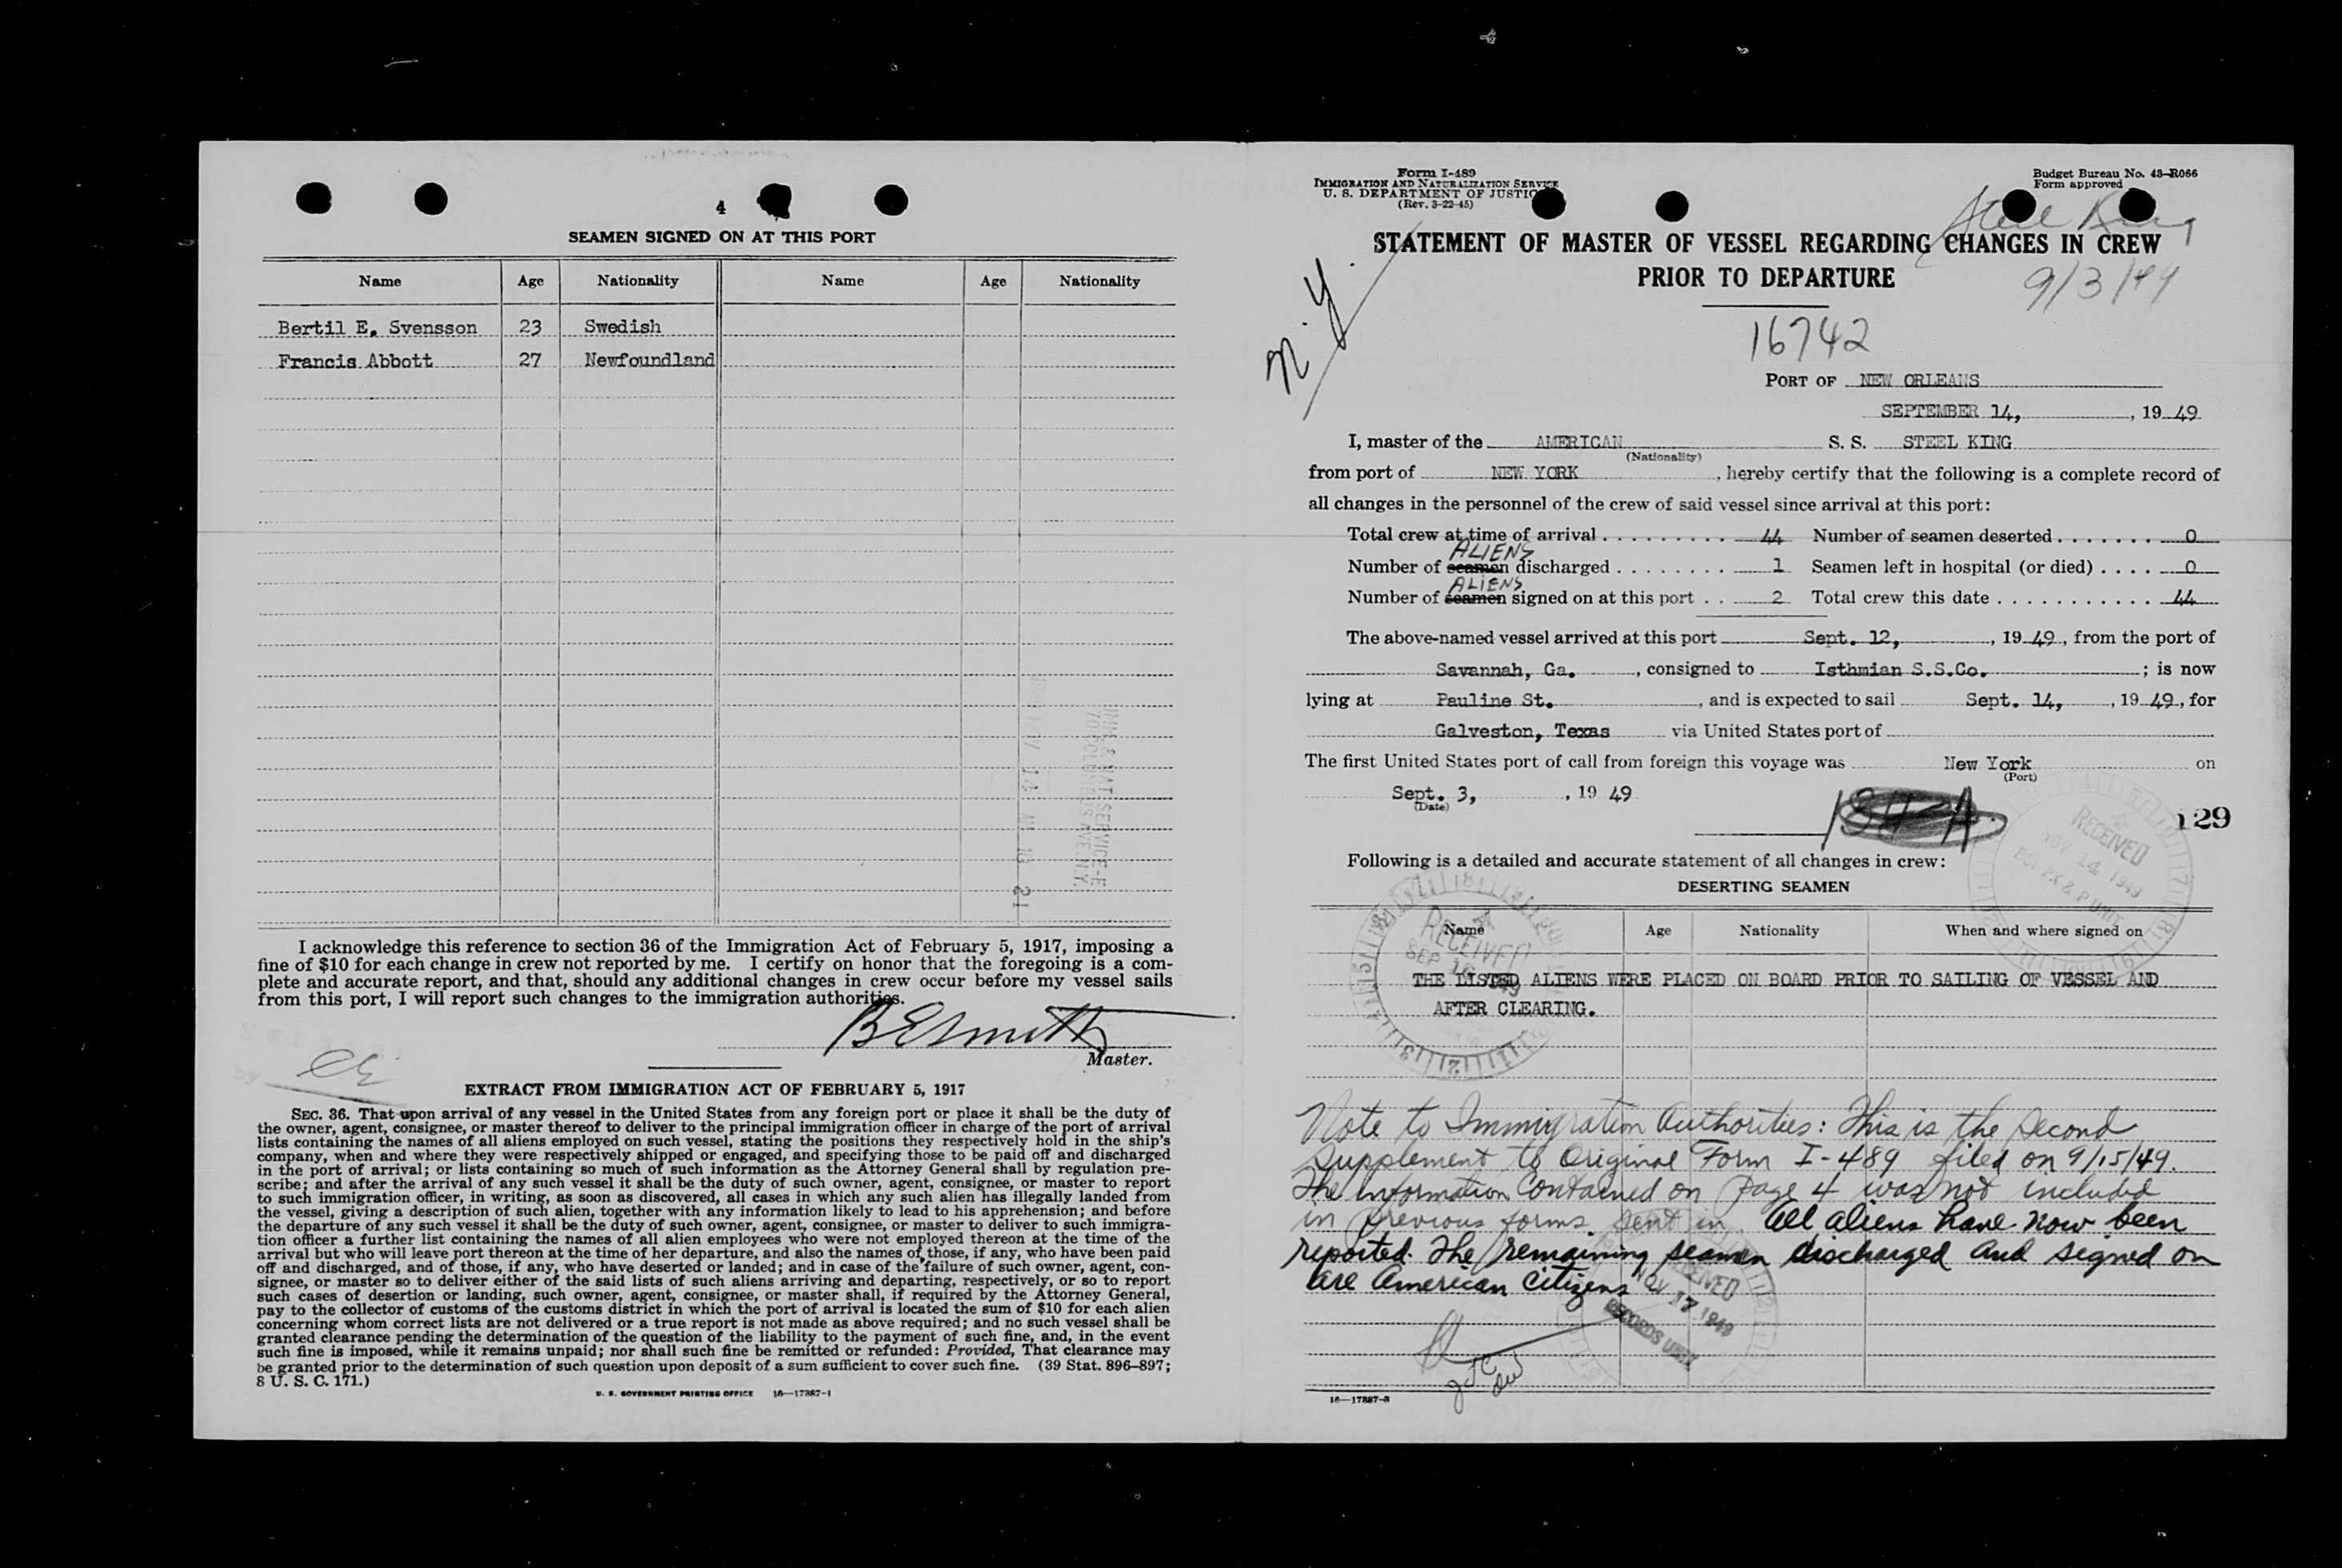 4
SEAMEN SIGNED ON AT THIS PORT
Name Age Nationality Name Age Nationality
Bertil E. Svensson 23 Swedish
Francis Abbott 27 Newfoundland
I acknowledge this reference to section 36 of the Immigration Act of February 5, 1917, imposing a
fine of $10 for each change in crew not reported by me. I certify on honor that the foregoing is a com-
plete and accurate report, and that, should any additional changes in crew occur before my vessel sails
from this port, I will report such changes to the immigration authorities.
B E Smith
Master.
EXTRACT FROM IMMIGRATION ACT OF FEBRUARY 5, 1917
SEC. 36. That upon arrival of any vessel in the United States from any foreign port or place it shall be the duty of
the owner, agent, consignee, or master thereof to deliver to the principal immigration officer in charge of the port of arrival
lists containing the names of all aliens employed on such vessel, stating the positions they respectively hold in the ship's
company, when and where they were respectively shipped or engaged, and specifying those to be paid off and discharged
in the port of arrival; or lists containing so much of such information as the Attorney General shall by regulation pre-
scribe; and after the arrival of any such vessel it shall be the duty of such owner, agent, consignee, or master to report
to such immigration officer, in writing, as soon as discovered, all cases in which any such alien has illegally landed from
the vessel, giving a description of such alien, together with any information likely to lead to his apprehension; and before
the departure of any such vessel it shall be the duty of such owner, agent, consignee, or master to deliver to such immigra-
tion officer a further list containing the names of all alien employees who were not employed thereon at the time of the
arrival but who will leave port thereon at the time of her departure, and also the names of those, if any, who have been paid
off and discharged, and of those, if any, who have deserted or landed; and in case of the failure of such owner, agent, con-
signee, or master so to deliver either of the said lists of such aliens arriving and departing, respectively, or so to report
such cases of desertion or landing, such owner, agent, consignee, or master shall, if required by the Attorney General,
pay to the collector of customs of the customs district in which the port of arrival is located the sum of $10 for each alien
concerning whom correct lists are not delivered or a true report is not made as above required; and no such vessel shall be
granted clearance pending the determination of the question of the liability to the payment of such fine, and, in the event
such fine is imposed, while it remains unpaid; nor shall such fine be remitted or refunded: Provided, That clearance may
be granted prior to the determination of such question upon deposit of a sum sufficient to cover such fine. (39 Stat. 896–897;
8 U. S. C. 171.)
U. S. GOVERNMENT PRINTING OFFICE 16—17887-1
Form I-489
IMMIGRATION AND NATURALIZATION SERVICE
U. S. DEPARTMENT OF JUSTICE
(Rev. 3-22-45)
Budget Bureau No. 43-R066
Form approved
Steel King
STATEMENT OF MASTER OF VESSEL REGARDING CHANGES IN CREW
PRIOR TO DEPARTURE
9/3/49
N.Y.
16742
PORT OF NEW ORLEANS
SEPTEMBER 14, , 19 49
I, master of the AMERICAN S. S. STEEL KING
(Nationality)
from port of NEW YORK , hereby certify that the following is a complete record of
all changes in the personnel of the crew of said vessel since arrival at this port:
Total crew at time of arrival . . . . . . . . . 44 Number of seamen deserted . . . . . . . 0
ALIENS
Number of seamen discharged . . . . . . . . 1 Seamen left in hospital (or died) . . . . 0
ALIENS
Number of seamen signed on at this port . . 2 Total crew this date . . . . . . . . . . . . 44
The above-named vessel arrived at this port Sept. 12, , 19 49 , from the port of
Savannah, Ga. , consigned to Isthmian S.S.Co. ; is now
lying at Pauline St. , and is expected to sail Sept. 14, , 19 49 , for
Galveston, Texas via United States port of
The first United States port of call from foreign this voyage was New York on
(Port)
Sept. 3, , 19 49
(Date)
129
RECEIVED
NOV 14 1949
Following is a detailed and accurate statement of all changes in crew:
DESERTING SEAMEN
Name Age Nationality When and where signed on
RECEIVED
SEP 16
THE LISTED ALIENS WERE PLACED ON BOARD PRIOR TO SAILING OF VESSEL AND
AFTER CLEARING.
Note to Immigration Authorities: This is the second
supplement to Original Form I-489 filed on 9/15/49.
The information contained on page 4 was not included
in previous forms sent in. All aliens have now been
reported. The remaining seamen discharged and signed on
are American citizens
RECEIVED
NOV 17 1949
RECORDS UNIT
16—17887-3